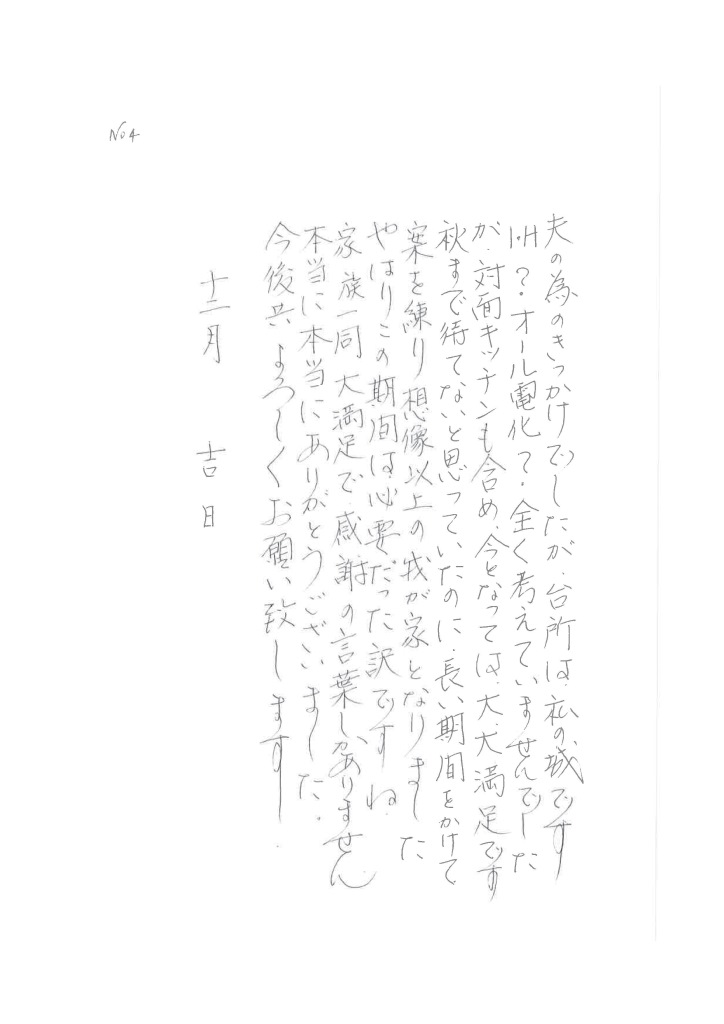 No4
夫の為のきっかけでしたが、台所は、私の城です
IH?・オール電化?・全く考えていませんでした
が、対面キッチンも含め、今となっては、大、大満足です
秋まで待てないと思っていたのに、長い期間をかけて
案を練り想像以上の我が家となりました
やはりこの期間は必要だった訳ですね.
家族一同大満足で、感謝の言葉しかありません
本当に本当にありがとうございました.
今後共よろしくお願い致します.
十二月 吉日